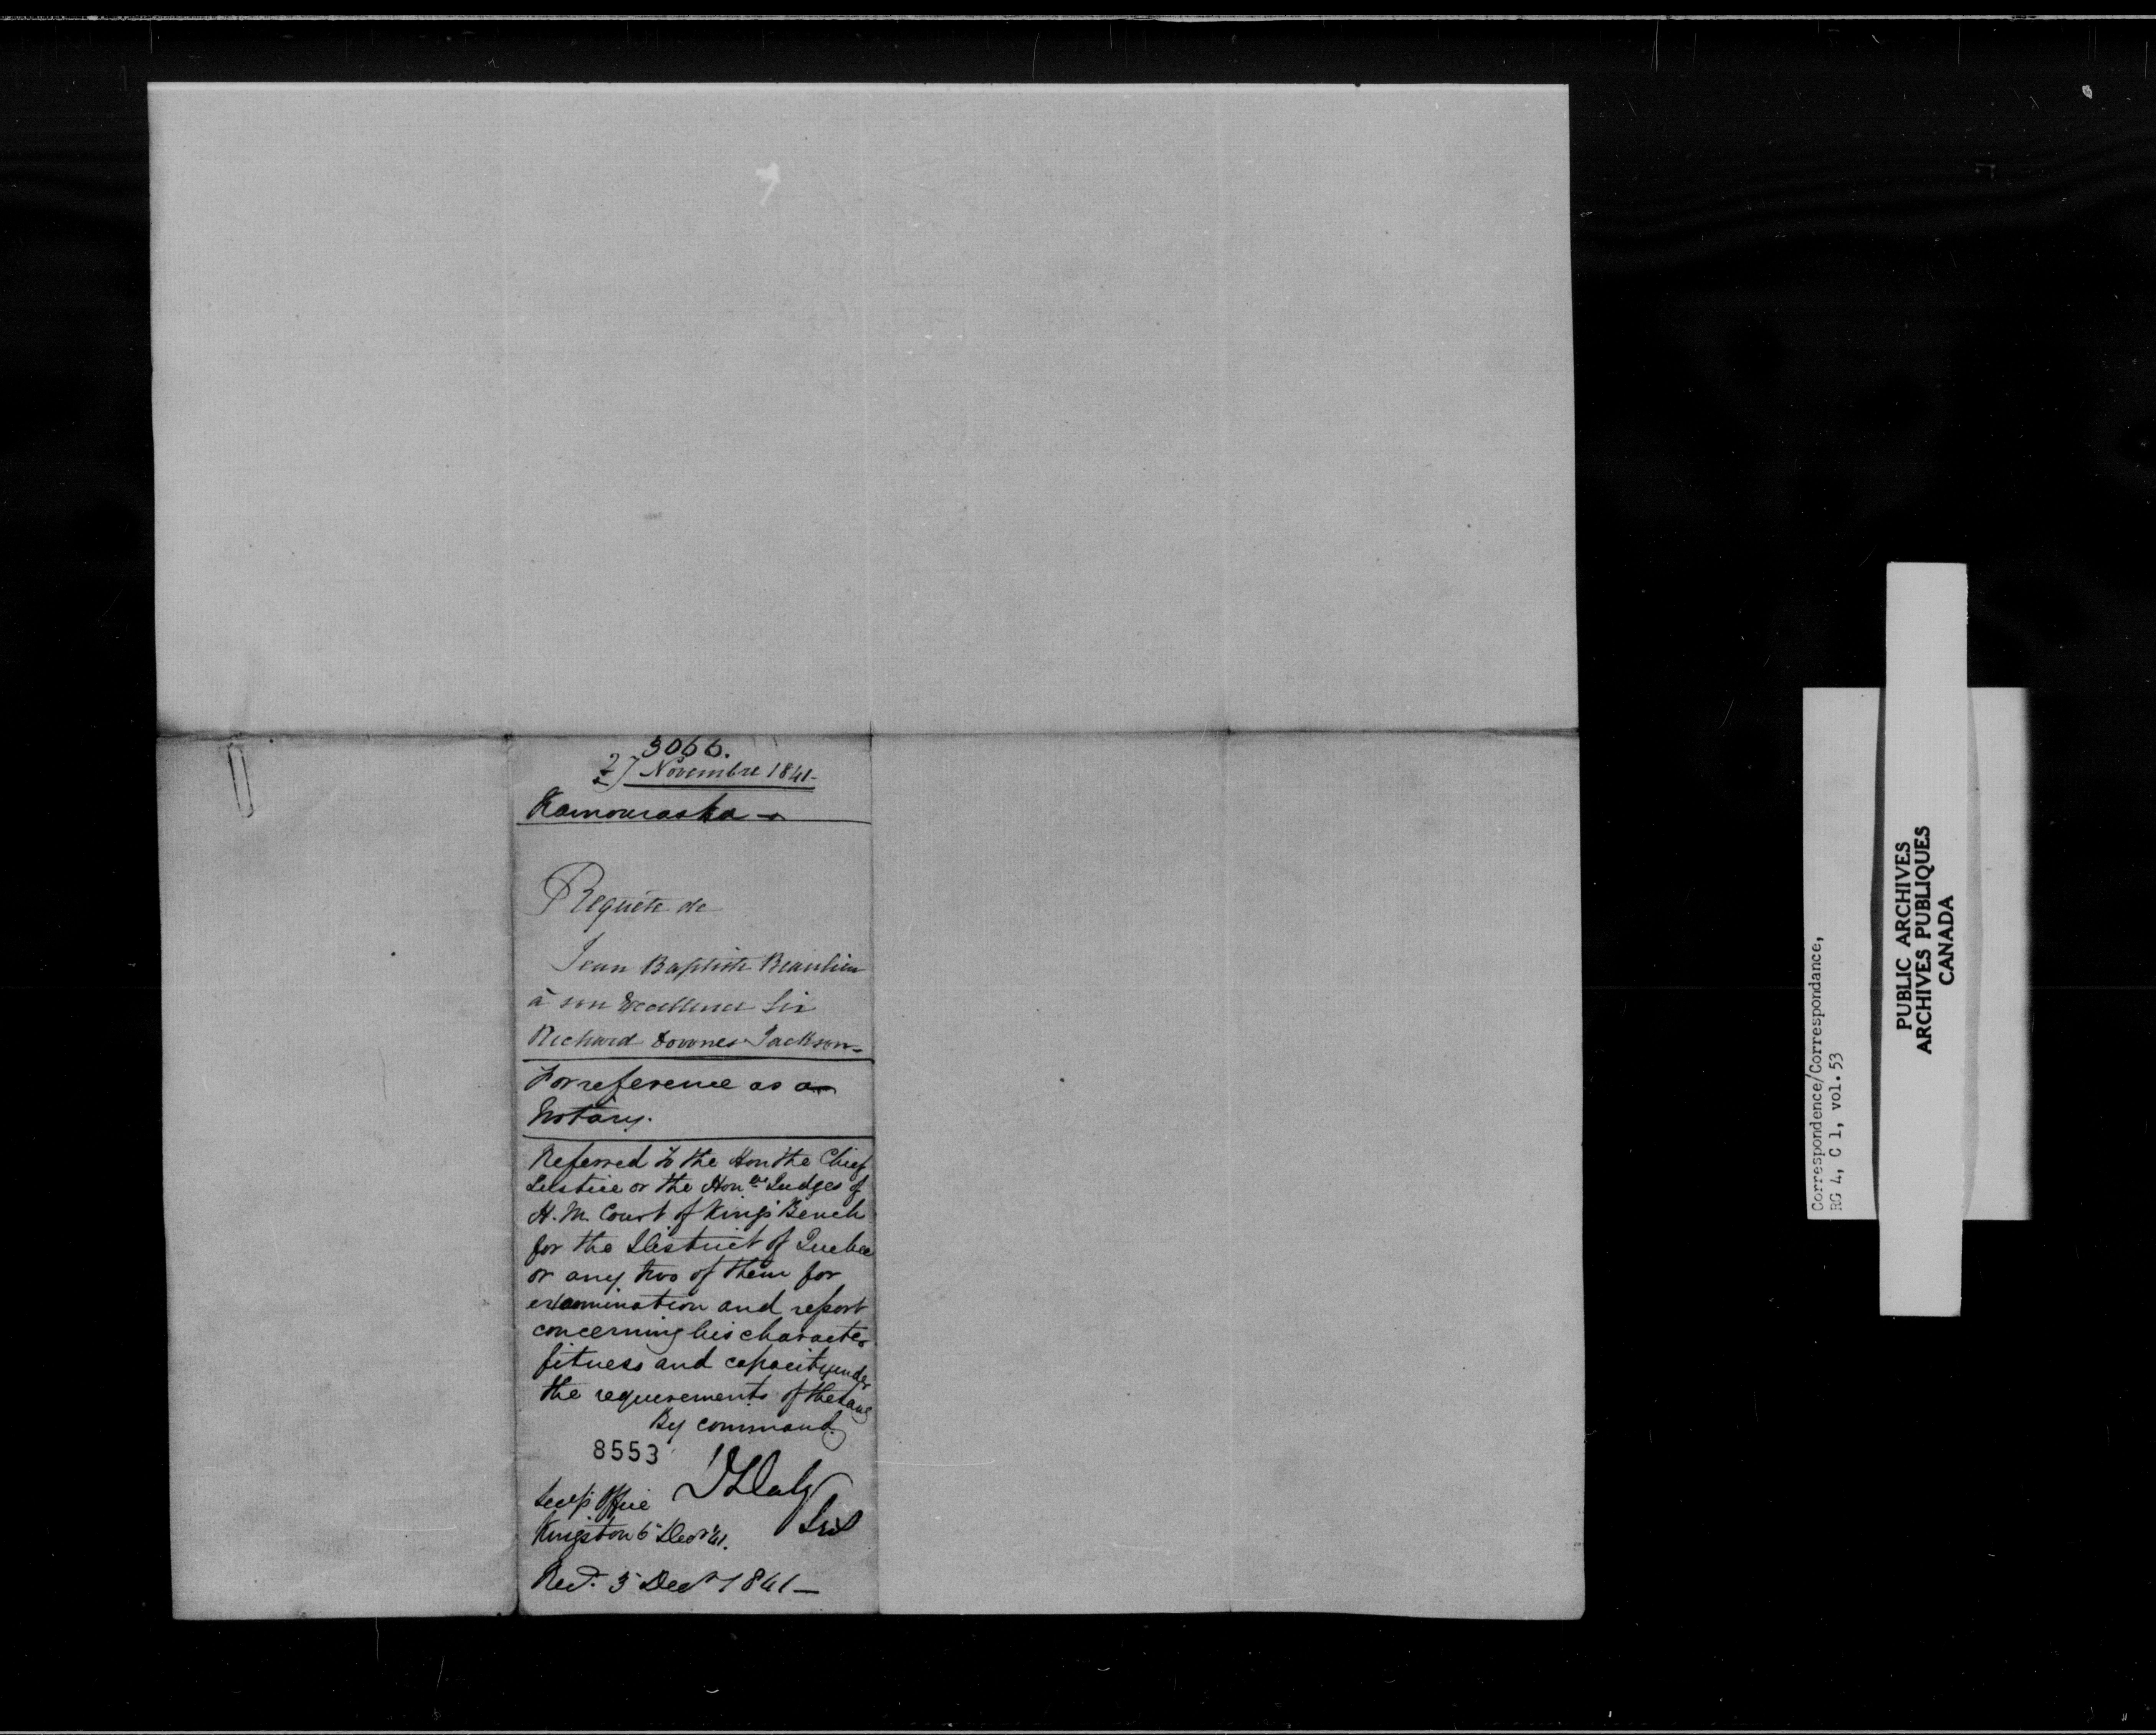 3066.
27 Novembre 1841-
Kamouraska -
Requête de
Jean Baptiste Beaulieu
à son Excellence Sir
Richard Downes Jackson-
For reference as a
Notary.
Referred to the Hon the Chief
Justice or the Honble Judges of
H. M. Court of King's Bench
for the District of Quebec
or any two of them for
examination and report
concerning his character
fitness and capacity under
the requirements of the Law
By command.
8553
D Daly
Secy
Secy's Office
Kingston 6 Decr 41.
Recd. 3 Decr 1841-
Correspondence/Correspondance,
RG 4, C 1, vol. 53
PUBLIC ARCHIVES
ARCHIVES PUBLIQUES
CANADA